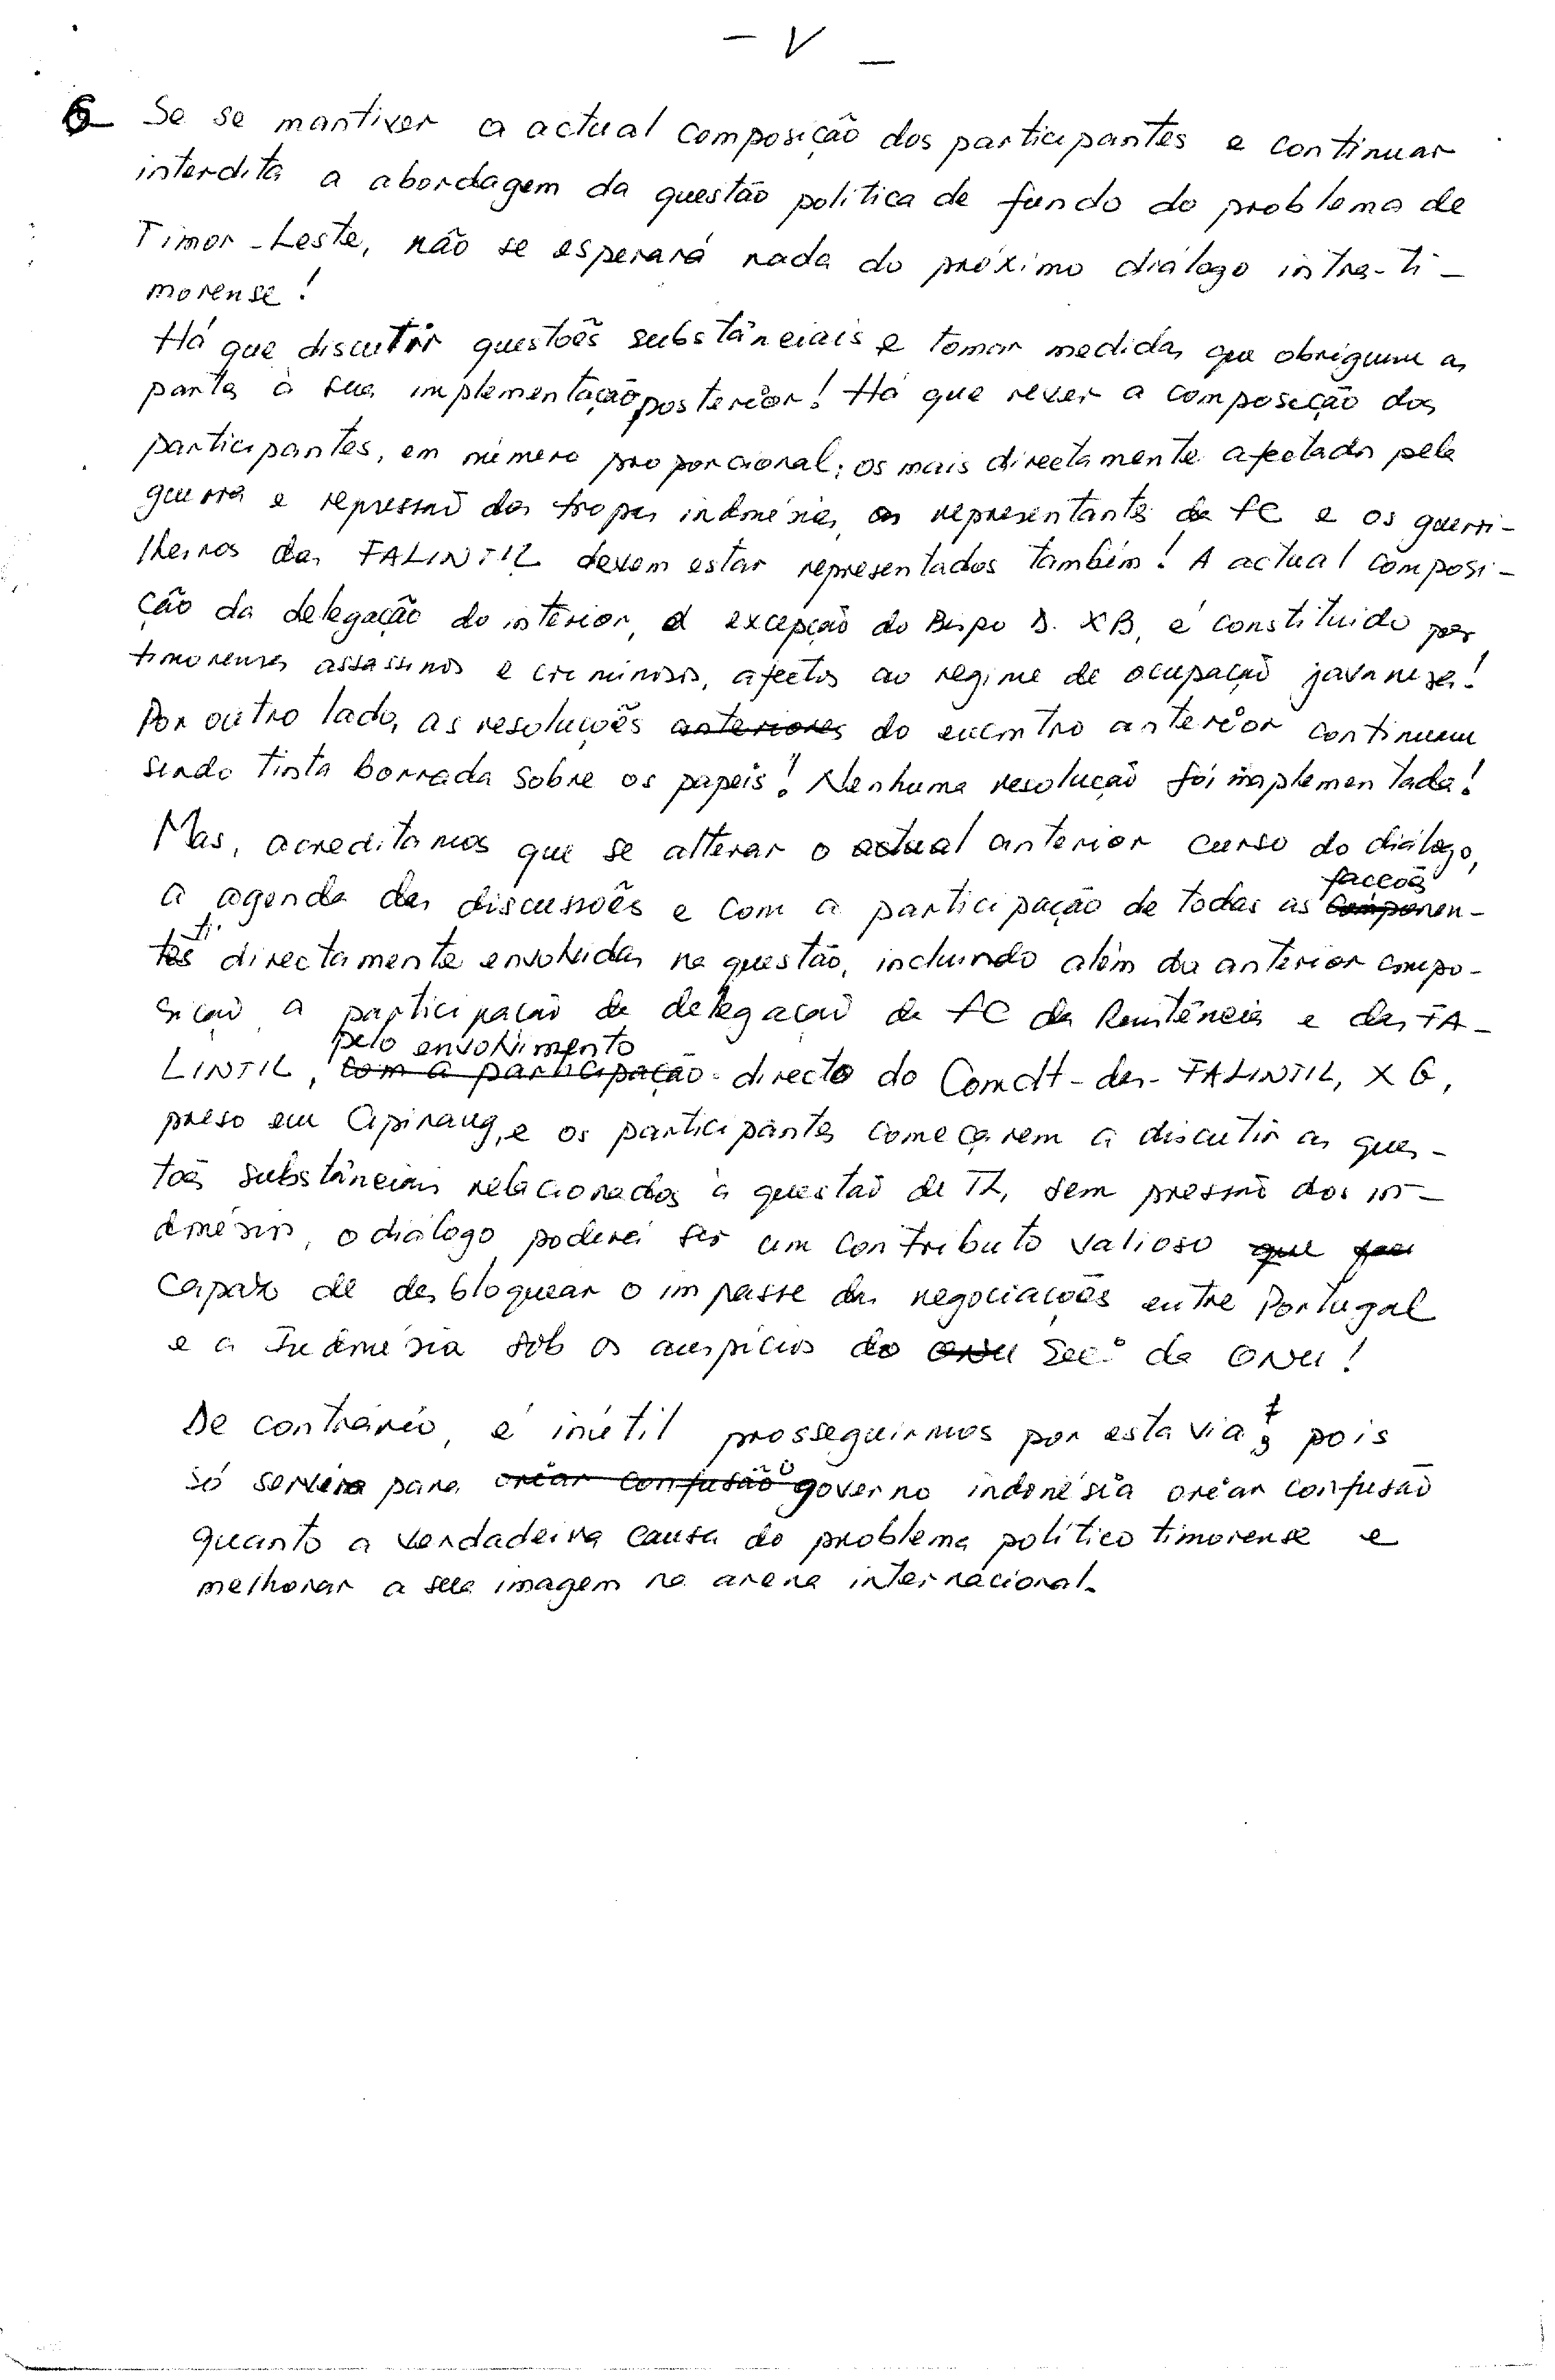 - V -
6- Se se mantiver a actual composição dos participantes e continuar
interdita a abordagem da questão política de fundo do problema de
Timor-Leste, não se esperará nada do próximo diálogo intra-ti-
morense!
Há que discutir questões substânciais e tomar medidas que obriguem as
partes à sua implementação posterior! Há que rever a composição dos
participantes, em número proporcional; os mais directamente afectados pela
guerra e repressão das tropas indonésias, os representantes da FC e os guerri-
lheiros das FALINTIL devem estar representados também! A actual composi-
ção da delegação do interior, à excepção do Bispo D. XB, é constituido por
timorenses assassinos e criminosos, afectos ao regime de ocupação javanesa!
Por outro lado, as resoluções anteriores do encontro anterior continuam
sendo tinta borrada sobre os papeis! Nenhuma resolução foi implementada!
Mas, acreditamos que se alterar o actual anterior curso do diálogo,
a agenda das discussões e com a participação de todas as
facções
componen-
ti.
tes directamente envolvidas na questão, incluindo além da anterior compo-
sição, a participação da delegação da FC da Resistência e das FA-
pelo envolvimento
LINTIL, com a participação directo do Comdt-das-FALINTIL, XG,
preso em Cipinang, e os participantes começarem a discutir as ques-
tões substânciais relacionados à questão de TL, sem pressão dos in-
donésios, o diálogo poderá ser um contributo valioso que
capaz de desbloquear o impasse das negociações entre Portugal
e a Indonésia sob os auspícios do ONU Sec.º da ONU!
De contrário, é inútil prosseguirmos por esta via, pois
só servira para criar confusão o governo indonésia criar confusão
quanto a verdadeira causa do problema político timorense e
melhorar a sua imagem na arena internacional.